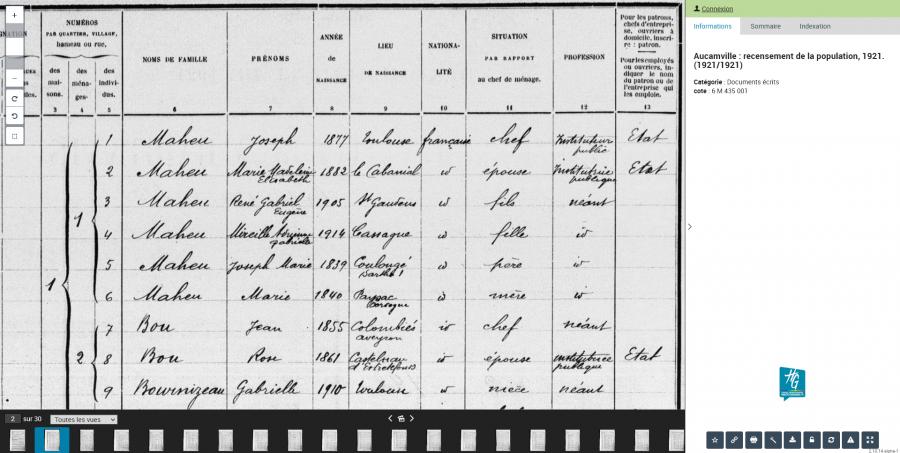 Connexion
Informations Sommaire Indexation
Aucamville : recensement de la population, 1921.
(1921/1921)
Catégorie : Documents écrits
cote : 6 M 435 001
NUMÉROS
PAR QUARTIER, VILLAGE,
hameau ou rue.
des maisons.
des ménages.
des individus.
NOMS DE FAMILLE
PRÉNOMS
ANNÉE
de
NAISSANCE
LIEU
DE NAISSANCE
NATIONA-
LITÉ
SITUATION
PAR RAPPORT
au chef de ménage.
PROFESSION
Pour les patrons,
chefs d'entrepri-
se, ouvriers à
domicile, inscri-
re : patron.
Pour les employés
ou ouvriers, in-
diquer le nom
du patron ou de
l'entreprise qui
les emploie.
3 4 5 6 7 8 9 10 11 12 13
1 Maheu Joseph 1877 Toulouse française chef Instituteur public Etat
2 Maheu Marie Madeleine Elisabeth 1882 le Cabanial id épouse Institutrice publique Etat
3 Maheu René Gabriel Eugène 1905 St Gaudens id fils néant
1
4 Maheu Mireille gabrielle 1914 Cassagne id fille id
5 Maheu Joseph Marie 1839 Coulongé Sarthe id père id
1
6 Maheu Marie 1840 id mère id
7 Bou Jean 1855 Colombiés aveyron id chef néant
2 8 Bou Rose 1861 Castelnau d'Estretefonds id épouse institutrice publique Etat
9 Bournizeau Gabrielle 1910 Toulouse id nièce néant
2 sur 30 Toutes les vues